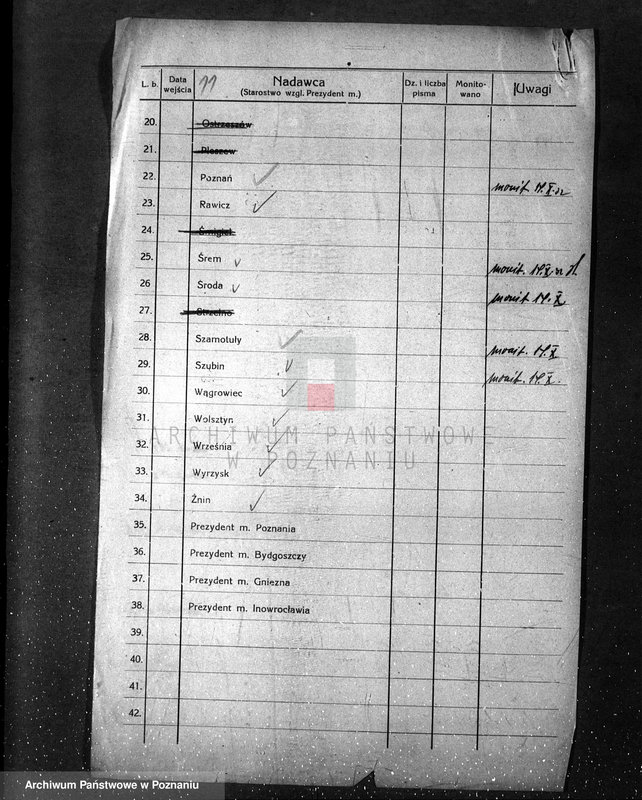 L. b. Data wejścia 11 Nadawca (Starostwo wzgl. Prezydent m.) Dz. i liczba pisma Monito-wano Uwagi
20. Ostrzeszów
21. Pleszew
22. Poznań monit 14.X.
23. Rawicz
24. Śmigiel
25. Śrem monit. 14.X
26 Środa monit 14.X
27. Strzelno
28. Szamotuły monit. 14.X
29. Szubin monit. 14.X.
30. Wągrowiec
31. Wolsztyn
32. Września
33. Wyrzysk
34. Żnin
35. Prezydent m. Poznania
36. Prezydent m. Bydgoszczy
37. Prezydent m. Gniezna
38. Prezydent m. Inowrocławia
39.
40.
41.
42.
ARCHIWUM PAŃSTWOWE
W POZNANIU
Archiwum Państwowe w Poznaniu